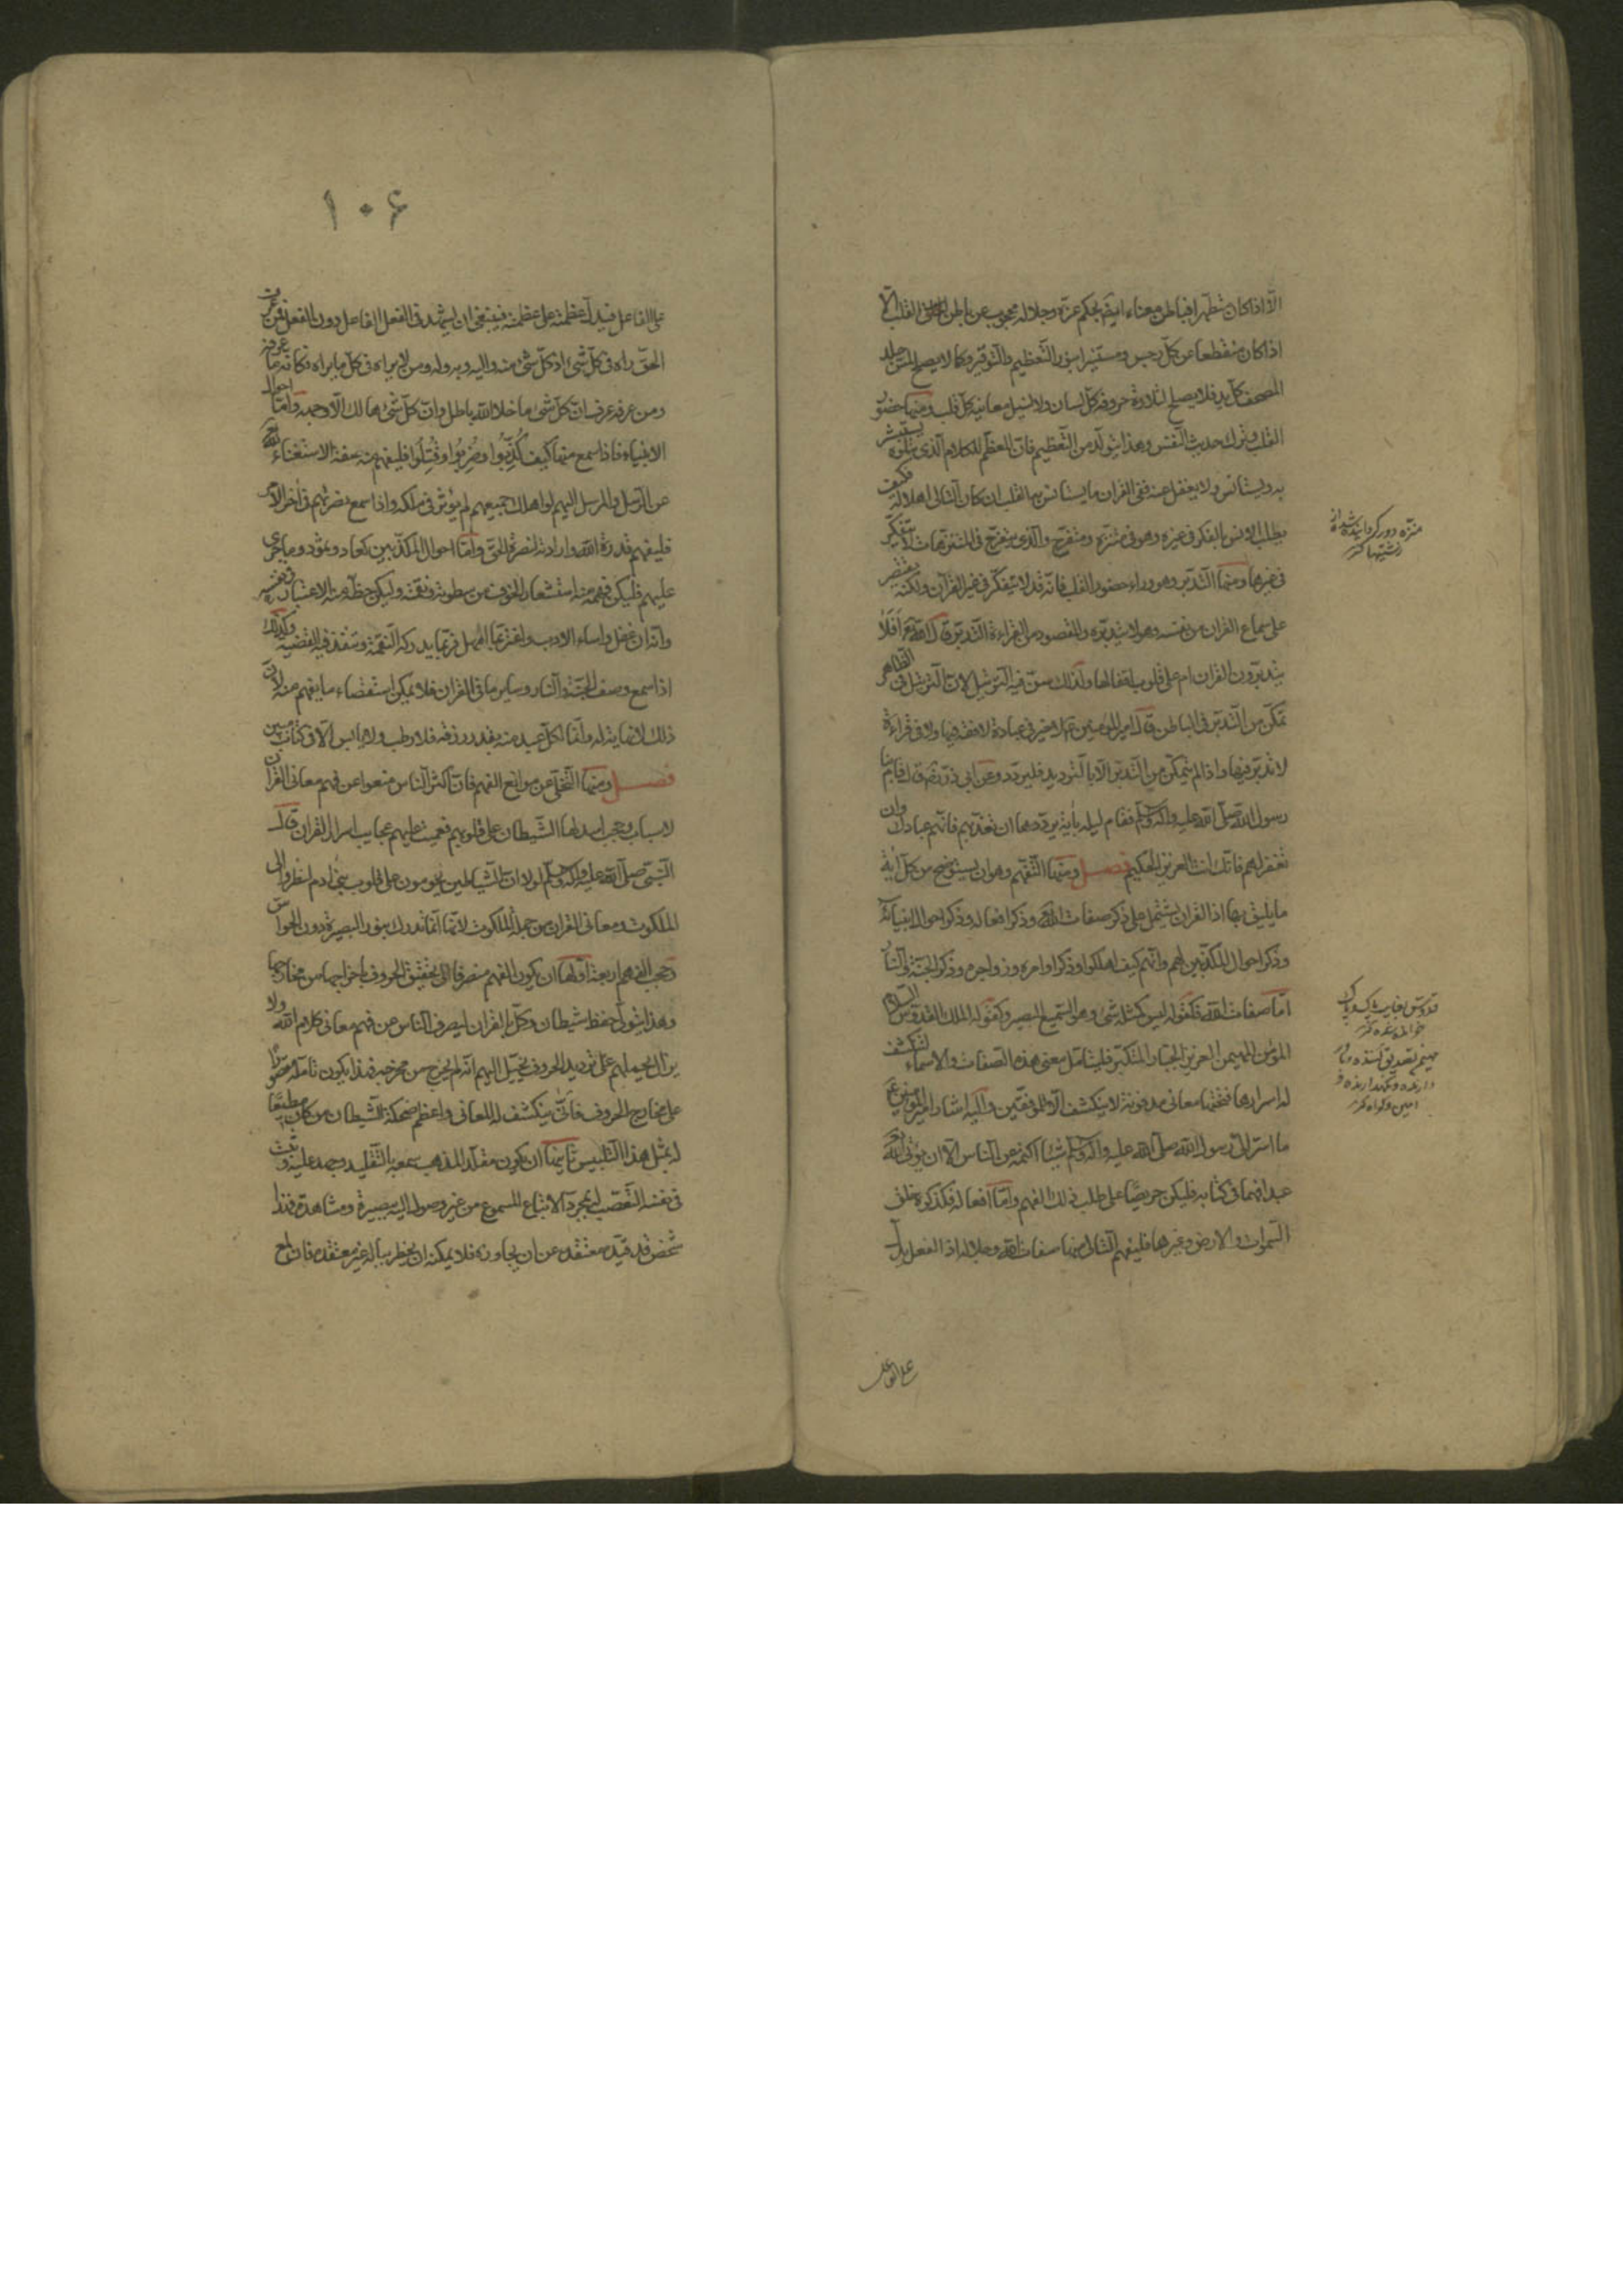 الّا اذا كان متطهرا فباطن معناه ايضا بحكم عزه وجلاله محجوب عن باطن القلب الّا
اذا كان منقطعا عن كلّ رجس ومستنيرا بنور التّعظيم والتّوقير وكما لا يصلح لمسّ جلد
المصحف كلّ يد فلا يصلح لتلاوة حروفه كلّ لسان ولا لنيل معانيه كلّ قلب ومنها حضور
القلب وترك حديث النّفس وهذا يتولّد من التّعظيم فانّ المعظّم للكلام الّذى يتلوه يستبشر
به ويستانس ولا يغفل عنه ففى القران ما يستانس به القلب ان كان التّالى اهلا له فكيف
يطلب الانس بالفكر فى غيره وهو فى متنزه ومتفرّج والّذى يتفرّج فى المتنزهات لا يتفكّر
فى غيرها ومنها التّدبّر وهو وراء حضور القلب فانّه قد لا يتفكّر فى غير القرآن ولكنّه يقتصر
على سماع القران من نفسه وهو لا يتدبّره والمقصود من القراءة التّدبّر قال الله تع افلا
يتدبّرون القران ام على قلوب اقفالها ولذلك سنّ فيه التّرتيل لانّ التّرتيل فى الظّاهر
تمكّن من التّدبّر فى الباطن قال امير المومنين ع لا خير فى عبادة لا فقه فيها ولا فى قراءة
لا تدبّر فيها واذا لم يتمكّن من التّدبّر الّا بالتّرديد فليردّد وعن ابى ذرّ رض قال قام بنا
رسول الله صلّى الله عليه واله وسلّم فقام ليله بآية يردّدها ان تعذّبهم فانّهم عبادك وان
تغفر لهم فانّك انت العزيز الحكيم فصل ومنها التّفهّم وهو ان يستوضح من كلّ آية
ما يليق بها اذا القران يشتمل على ذكر صفات الله وذكر افعاله وذكر احوال انبيائه
وذكر احوال المكذّبين لهم وانّهم كيف اهلكوا وذكر اوامره وزواجره وذكر الجنّة والنّار
امّا صفات الله فكقوله ليس كمثله شئ وهو السّميع البصير وكقوله الملك القدّوس السّلام
المؤمن المهيمن العزيز الجبّار المتكبّر فليتامّل معنى هذه الصّفات والاسماء لتنكشف
له اسرارها فتحتها معانى مدفونة لا ينكشف الّا للموفّقين واليه اشار امير المؤمنين ع
ما اسرّ الىّ رسول الله صلّى الله عليه واله وسلّم شيئا اكتمه عن النّاس الّا ان يؤتى الله
عبدا فهما فى كتابه فليكن حريصا على طلب ذلك الفهم وامّا افعاله فكذكره خلق
السّموات والارض وغيرها فليفهم التّالى منها صفات الله وجلاله اذ الفعل يدلّ
على الفاعل
منزّه دور كردانيده شده از
زشتيها كنز
قدّوس بغايت پاك و پاك
خوانده شده كنز
مهيمن تصديق كننده
دارنده ونگهدارنده و
امين و گواه كنز
۱۰۶
على الفاعل فيدلّ عظمته على عظمته فينبغى ان يشهد فى الفعل الفاعل دون الفعل فمن عرف
الحقّ راه فى كلّ شئ اذ كلّ شئ منه واليه وبه وله ومن لا يراه فى كلّ ما يراه فكانّه ما عرفه
ومن عرفه عرف انّ كلّ شئ ما خلا الله باطل وانّ كلّ شئ هالك الّا وجهه وامّا احوال
الانبياء فاذا سمع منها كيف كُذّبوا وضُربوا وقُتلوا فليفهم منه صفة الاستغناء لله
عن الرّسل والمرسل اليهم لو اهلك جميعهم لم يؤثر فى ملكه واذا سمع نصرتهم فى اخر الامر
فليفهم قدرة الله وارادته لنصرة الحقّ وامّا احوال المكذّبين كعاد وثمود وما جرى
عليهم فليكن فهمه منه استشعار الخوف من سطوته ونقمته وليكن حظّه منه الاعتبار فى نفسه
وانّه ان غفل واساء الادب واغترّ بما امهل فربّما يدركه النّقمة وتنفذ فيه القضيه وكذلك
اذا سمع وصف الجنّة والنّار وساير ما فى القران فلا يمكن استقصاء ما يفهم منه لانّ
ذلك لا نهاية له وانّما لكلّ عبد منه بقدر رزقه فلا رطب ولا يابس الّا فى كتاب مبين
فصل ومنها التّخلّى عن موانع الفهم فانّ اكثر النّاس منعوا عن فهم معانى القران
لاسباب وحجب اسدلها الشّيطان على قلوبهم فعميت عليهم عجايب اسرار القران قال
النّبى صلّى الله عليه واله وسلّم لولا انّ الشّياطين يحومون على قلوب بنى ادم لنظروا الى
الملكوت ومعانى القران من جملة الملكوت لانّها انّما تدرك بنور البصيرة دون الحواسّ
وحجب الفهم اربعة اوّلها ان يكون الفهم منصرفا الى تحقيق الحروف باخراجها من مخارجها
وهذا يتولّى حفظه شيطان وكّل بالقران ليصرف النّاس عن فهم معانى كلام الله ولا
يزال يحملهم على ترديد الحروف يخيّل اليهم انّه لم يخرج من مخرجه فهذا يكون تامّله مقصورا
على مخارج الحروف فانّى ينكشف له المعانى واعظم ضحكة للشّيطان من كان مطيعا
له بمثل هذا التّلبيس ثانيها ان يكون مقلّدا لمذهب سمعه بالتّقليد وجمد عليه وثبت
فى نفسه التّعصّب له بمجرّد الاتباع للمسموع من غير وصول اليه ببصيرة ومشاهدة فهذا
شخص قد قيّده معتقده عن ان يجاوزه فلا يمكنه ان يخطر بباله غير معتقده فان لمع